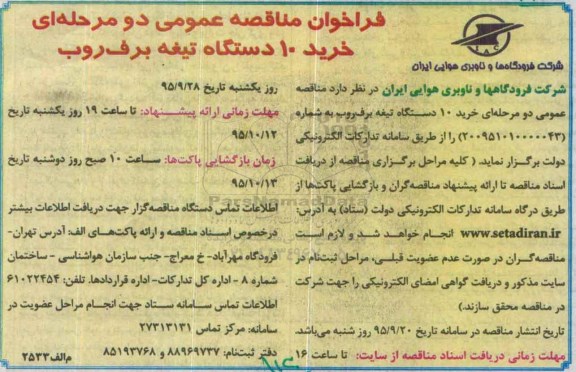 فراخوان مناقصه عمومی دو مرحله‌ای
خرید ۱۰ دستگاه تیغه برف‌روب
شرکت فرودگاه‌ها و ناوبری هوایی ایران
شرکت فرودگاهها و ناوبری هوایی ایران در نظر دارد مناقصه
عمومی دو مرحله‌ای خرید ۱۰ دستگاه تیغه برف‌روب به شماره
(۲۰۰۹۵۱۰۱۰۰۰۰۰۴۳) را از طریق سامانه تدارکات الکترونیکی
دولت برگزار نماید. ( کلیه مراحل برگزاری مناقصه از دریافت
اسناد مناقصه تا ارائه پیشنهاد مناقصه‌گران و بازگشایی پاکت‌ها از
طریق درگاه سامانه تدارکات الکترونیکی دولت (ستاد) به آدرس:
www.setadiran.ir انجام خواهد شد و لازم است
مناقصه‌گران در صورت عدم عضویت قبلی، مراحل ثبت‌نام در
سایت مذکور و دریافت گواهی امضای الکترونیکی را جهت شرکت
در مناقصه محقق سازند.)
تاریخ انتشار مناقصه در سامانه تاریخ ۹۵/۹/۲۰ روز شنبه می‌باشد.
مهلت زمانی دریافت اسناد مناقصه از سایت: تا ساعت ۱۶
روز یکشنبه تاریخ ۹۵/۹/۲۸
مهلت زمانی ارائه پیشنهاد: تا ساعت ۱۹ روز یکشنبه تاریخ
۹۵/۱۰/۱۲
زمان بازگشایی پاکت‌ها: ساعت ۱۰ صبح روز دوشنبه تاریخ
۹۵/۱۰/۱۳
اطلاعات تماس دستگاه مناقصه‌گزار جهت دریافت اطلاعات بیشتر
درخصوص اسناد مناقصه و ارائه پاکت‌های الف آدرس تهران-
فرودگاه مهرآباد- خ معراج- جنب سازمان هواشناسی - ساختمان
شماره ۸ - اداره کل تدارکات- اداره قراردادها. تلفن: ۶۱۰۲۲۴۵۴
اطلاعات تماس سامانه ستاد جهت انجام مراحل عضویت در
سامانه: مرکز تماس ۲۷۳۱۳۱۳۱
دفتر ثبت‌نام: ۸۸۹۶۹۷۳۷ و ۸۵۱۹۳۷۶۸
م‌الف۲۵۳۳